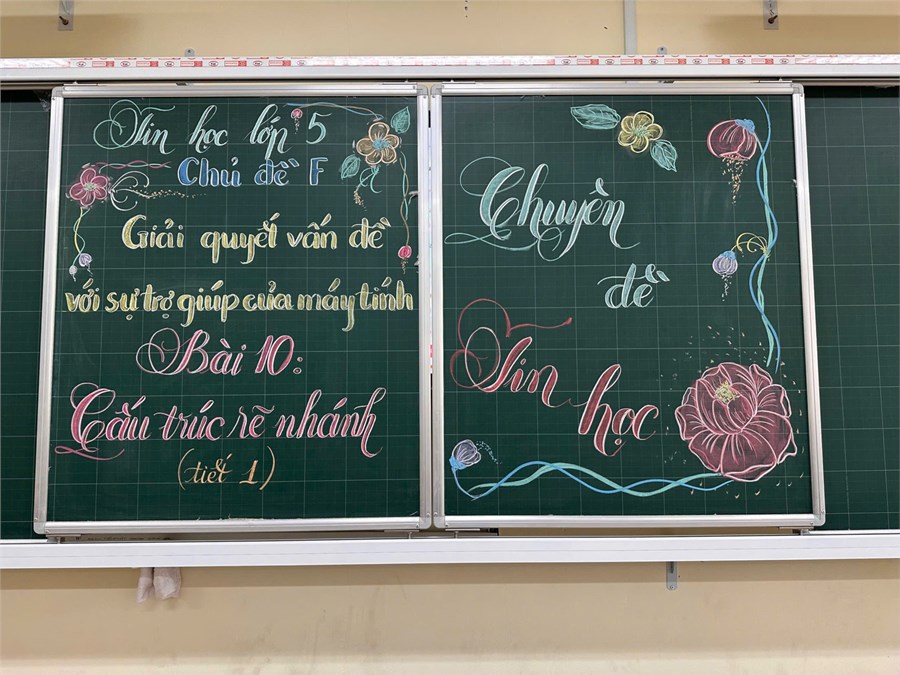 Tin học lớp 5
Chủ đề F
Giải quyết vấn đề
với sự trợ giúp của máy tính
Bài 10:
Cấu trúc rẽ nhánh
(tiết 1)
Chuyên
đề
Tin học